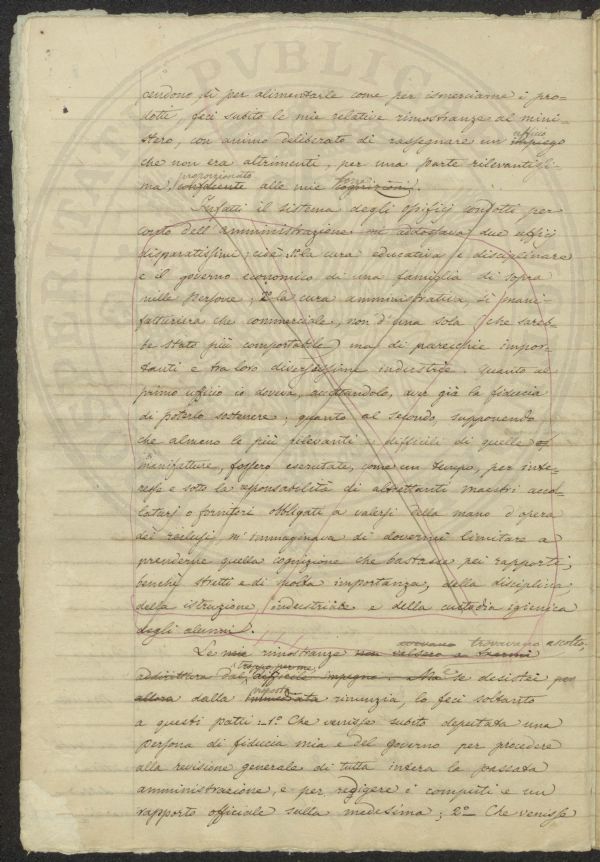 cendono sì per alimentarle come per ismerciarne i pro-
dotti, feci subito le mie relative rimostranze al mini-
stero, con animo deliberato di rassegnare un impiego
ufficio
che non era altrimenti, per una parte rilevantissi-
ma, confacente alle mie cognizioni.
proporzionato forze
Infatti il sistema degli opificj condotti per
conto dell'amministrazione mi addossava due ufficj
disparatissimi; cioè 1.o la cura educativa e disciplinare
e il governo economico di una famiglia di sopra
mille persone; 2.o la cura amministrativa, sì mani-
fatturiera che commerciale, non d'una sola (che sareb-
be stato più comportabile) ma di parecchie impor-
tanti e tra loro diversissime industrie. Quanto al
primo ufficio io doveva, accettandolo, aver già la fiducia
di poterlo sostenere; quanto al secondo, supponendo
che almeno le più rilevanti e difficili di quelle
manifatture, fossero esercitate, come un tempo, per inte-
resse e sotto la responsabilità di altrettanti maestri accol-
latarj o fornitori obbligati a valersi della mano d'opera
dei reclusi, m'immaginava di dovermi limitare a
prenderne quella cognizione che bastasse pei rapporti,
benchè stretti e di molta importanza, della disciplina
della istruzione industriale e della custodia igienica
degli alunni.
Le mie rimostranze non valsero a trarmi
trovavano ascolto;
addirittura dal difficile impegno. Ma se desistei per
troppo per me
allora dalla immediata rinunzia, lo feci soltanto
risposta
a questi patti: 1.o Che venisse subito deputata una
persona di fiducia mia e del governo per procedere
alla revisione generale di tutta intera la passata
amministrazione, e per redigere i computi e un
rapporto officiale sulla medesima; 2.o Che venisse